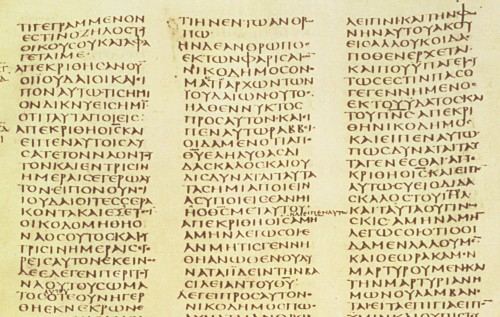 ΤΙΓΕΓΡΑΜΜΕΝΟΝ
ΕϹΤΙΝΟΖΗΛΟϹΤΟΥ
ΟΙΚΟΥϹΟΥΚΑΤΑΦΑ
ΓΕΤΑΙΜΕ
ΑΠΕΚΡΙΘΗϹΑΝΟΥ
ΟΙΪΟΥΔΑΙΟΙΚΑΙΕΙ
ΠΟΝΑΥΤΩΤΙϹΗΜΙ
ΟΝΔΙΚΝΥΕΙϹΗΜΙ
ΟΤΙΤΑΥΤΑΠΟΙΕΙϹ
ΑΠΕΚΡΙΘΗΟΙϹΚΑΙ
ΕΙΠΕΝΑΥΤΟΙϹΛΥ
ϹΑΤΕΤΟΝΝΑΟΝΤΟΥ
ΤΟΝΚΑΙΕΝΤΡΙϹΙΝ
ΗΜΕΡΑΙϹΕΓΕΡΩΑΥ
ΤΟΝΕΙΠΟΝΟΥΝΟΙ
ΙΟΥΔΑΙΟΙΤΕϹϹΕΡΑ
ΚΟΝΤΑΚΑΙΕΞΕΤΕϹΙ
ΟΙΚΟΔΟΜΗΘΗΟ
ΝΑΟϹΟΥΤΟϹΚΑΙϹΥ
ΤΡΙϹΙΝΗΜΕΡΑΙϹΕ
ΓΕΡΕΙϹΑΥΤΟΝΕΚΕΙΝ
ΔΕΕΛΕΓΕΝΠΕΡΙΤΟΥ
ΝΑΟΥΤΟΥϹΩΜΑ
ΤΟϹΟΤΕΟΥΝΗΓΕΡ
ΘΗΕΚΝΕΚΡΩΝ
ΤΙΗΝΕΝΤΩΑΝΘΡ
ΠΩ
ΗΝΔΕΑΝΘΡΩΠΟϹ
ΕΚΤΩΝΦΑΡΙϹΑΙΩ
ΝΙΚΟΔΗΜΟϹΟΝΟ
ΜΑΤΙΑΡΧΩΝΤΩΝ
ΪΟΥΔΑΙΩΝΟΥΤΟϹ
ΗΛΘΕΝΝΥΚΤΟϹ
ΠΡΟϹΑΥΤΟΝΚΑΙΕΙ
ΠΕΝΑΥΤΩΡΑΒΒΙ
ΟΙΔΑΜΕΝΟΤΙΑΠΟ
ΘΥΕΛΗΛΥΘΑϹΔΙ
ΔΑϹΚΑΛΟϹΚΑΙΟΥ
ΔΙϹΔΥΝΑΤΑΙΤΑΥΤΑ
ΤΑϹΗΜΙΑΠΟΙΕΙΝ
ΑϹΥΠΟΙΕΙϹΕΑΝΜΗ
ΗΟΘϹΜΕΤΑΥΤΟΥ
ΑΠΕΚΡΙΘΗΟΙϹΑΜΗ
ΑΜΗΝΛΕΓΩϹΟΙΕ
ΑΝΜΗΤΙϹΓΕΝΝΗ
ΘΗΑΝΩΘΕΝΟΥΔΥ
ΝΑΤΑΙΪΔΕΙΝΤΗΝΒΑ
ϹΙΛΕΙΑΝΤΟΥΘΥ
ΛΕΓΕΙΠΡΟϹΑΥΤΟΝ
ΝΙΚΟΔΗΜΟϹΠΩϹ
ΛΕΙΠΝΙΚΑΙΤΗΝΦΩ
ΝΗΝΑΥΤΟΥΑΚΟΥ
ΕΙϹΑΛΛΟΥΚΟΙΔΑϹ
ΠΟΘΕΝΕΡΧΕΤΑΙ
ΚΑΙΠΟΥΥΠΑΓΕΙΟΥ
ΤΩϹΕϹΤΙΝΠΑϹΟ
ΓΕΓΕΝΝΗΜΕΝΟϹ
ΕΚΤΟΥΥΔΑΤΟϹΚΑΙ
ΤΟΥΠΝϹΑΠΕΚΡΙ
ΘΗΝΙΚΟΔΗΜΟϹ
ΚΑΙΕΙΠΕΝΑΥΤΩ
ΠΩϹΔΥΝΑΤΑΙΤΑΥ
ΤΑΓΕΝΕϹΘΑΙΑΠΕ
ΚΡΙΘΗΟΙϹΚΑΙΕΙΠΕ
ΑΥΤΩϹΥΕΙΟΔΙΔΑ
ϹΚΑΛΟϹΤΟΥΙΗΛ
ΚΑΙΤΑΥΤΑΟΥΓΙΝΩ
ϹΚΙϹΑΜΗΝΑΜΗΝ
ΛΕΓΩϹΟΙΟΤΙΟΟΙ
ΔΑΜΕΝΛΑΛΟΥΜΕ
ΚΑΙΟΕΩΡΑΚΑΜΕΝ
ΜΑΡΤΥΡΟΥΜΕΝΚΑΙ
ΤΗΝΜΑΡΤΥΡΙΑΝΗ
ΜΩΝΟΥΛΑΜΒΑΝΕ
ΤΑΙΕΙΤΑΕΠΙΓΙΑΕΙΠ